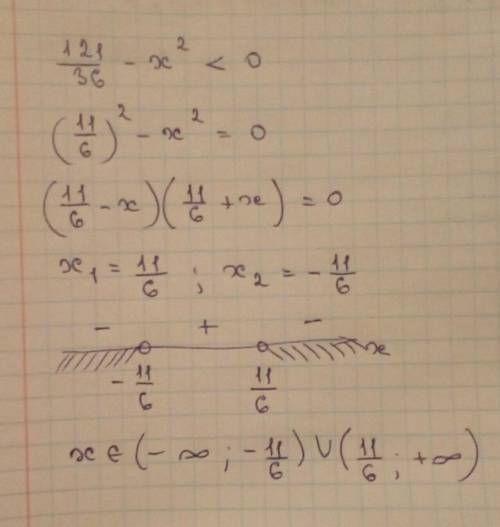 121/36 - x² < 0
(11/6)² - x² = 0
(11/6 - x)(11/6 + x) = 0
x₁ = 11/6 ; x₂ = - 11/6
- + -
x
- 11/6 11/6
x ∈ (- ∞ ; - 11/6) ∪ (11/6 ; +∞)